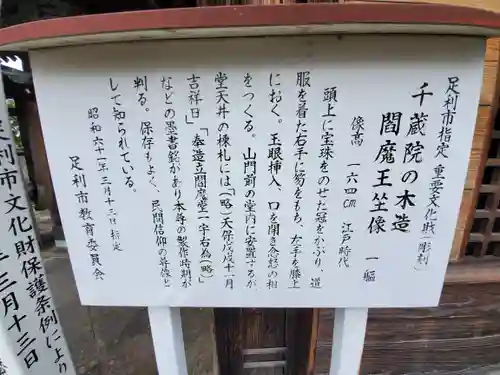 足利市指定 重要文化財(彫刻)
千蔵院の木造
閻魔王坐像 一軀
像高 一六四㎝ 江戸時代
頭上に宝珠をのせた冠をかぶり、道
服を着た右手に笏をもち、左手を膝上
におく。玉眼挿入、口を開き忿怒の相
をつくる。山門前の堂内に安置するが
堂天井の棟札には「(略)天弥戊戌十一月
吉祥日」「奉造立閻魔堂一宇右為(略)
などの墨書銘があり本尊の製作時期が
判る。保存もよく、民間信仰の尊像と
して知られている。
昭和六十一年三月十三日指定
足利市教育委員会
足利市文化財保護条例により
三月十三日